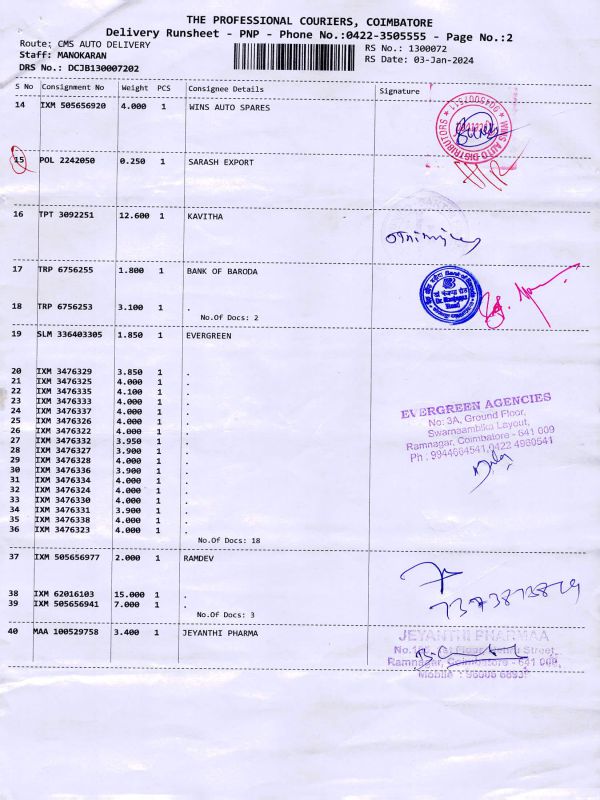 THE PROFESSIONAL COURIERS, COIMBATORE
Delivery Runsheet - PNP - Phone No.:0422-3505555 - Page No.:2
Route: CMS AUTO DELIVERY
RS No.: 1300072
Staff: MANOKARAN
RS Date: 03-Jan-2024
DRS No.: DCJB130007202
S No Consignment No Weight PCS Consignee Details Signature
14 IXM 505656920 4.000 1 WINS AUTO SPARES
15 POL 2242050 0.250 1 SARASH EXPORT
16 TPT 3092251 12.600 1 KAVITHA
17 TRP 6756255 1.800 1 BANK OF BARODA
18 TRP 6756253 3.100 1 .
No.Of Docs: 2
19 SLM 336403305 1.850 1 EVERGREEN
20 IXM 3476329 3.850 1 .
21 IXM 3476325 4.000 1 .
22 IXM 3476335 4.100 1 .
23 IXM 3476333 4.000 1 .
24 IXM 3476337 4.000 1 .
25 IXM 3476326 4.000 1 .
26 IXM 3476322 4.000 1 .
27 IXM 3476332 3.950 1 .
28 IXM 3476327 3.900 1 .
29 IXM 3476328 4.000 1 .
30 IXM 3476336 3.900 1 .
31 IXM 3476334 4.000 1 .
32 IXM 3476324 4.000 1 .
33 IXM 3476330 4.000 1 .
34 IXM 3476331 3.900 1 .
35 IXM 3476338 4.000 1 .
36 IXM 3476323 4.000 1 .
No.Of Docs: 18
EVERGREEN AGENCIES
No: 3A, Ground Floor,
Swarnaambika Layout,
Ramnagar, Coimbatore - 641 009
Ph : 9944664541,0422 4980541
37 IXM 505656977 2.000 1 RAMDEV
38 IXM 62016103 15.000 1 .
39 IXM 505656941 7.000 1 .
No.Of Docs: 3
40 MAA 100529758 3.400 1 JEYANTHI PHARMA
JEYANTHI PHARMAA
Ramnagar, Coimbatore - 641 009,